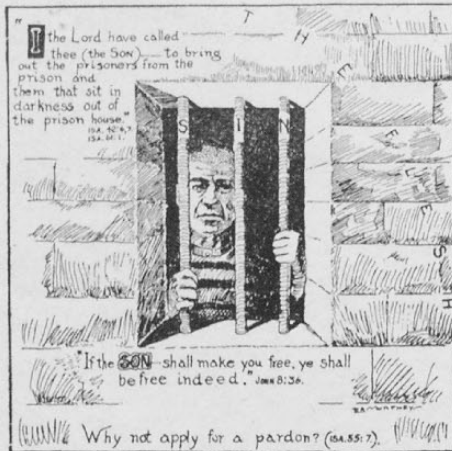 "I the Lord have called
thee (the SON) — to bring
out the prisoners from the
prison and
them that sit in
darkness out of
the prison house."
ISA. 42:6,7.
ISA. 61:1.
THE FLESH
SIN
"If the SON shall make you free, ye shall
be free indeed." JOHN 8:36.
Why not apply for a pardon? (ISA. 55:7).